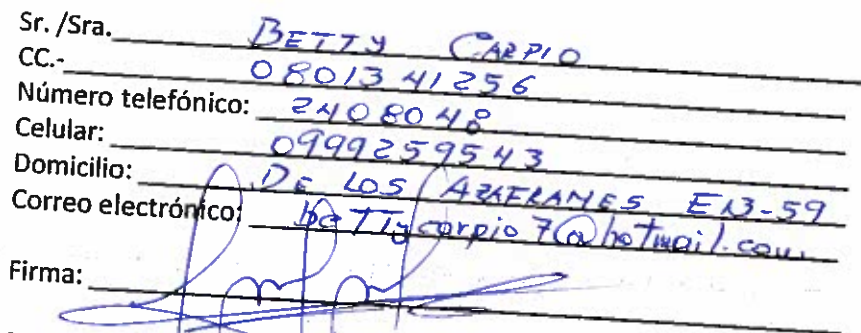 Sr. /Sra. BETTY CARPIO
CC.- 0801341256
Número telefónico: 2408048
Celular: 0999259543
Domicilio: DE LOS AZAFRAMES E13-59
Correo electrónico: bettycarpio7@hotmail.com
Firma: